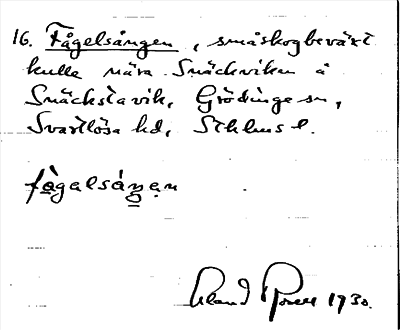 16. Fågelsången, småskogbeväxt
kulle nära Snäckviken å
Snäckstavik, Grödinge sn,
Svartlösa hd, Sthlms l.
fågalsáŋən
1930.